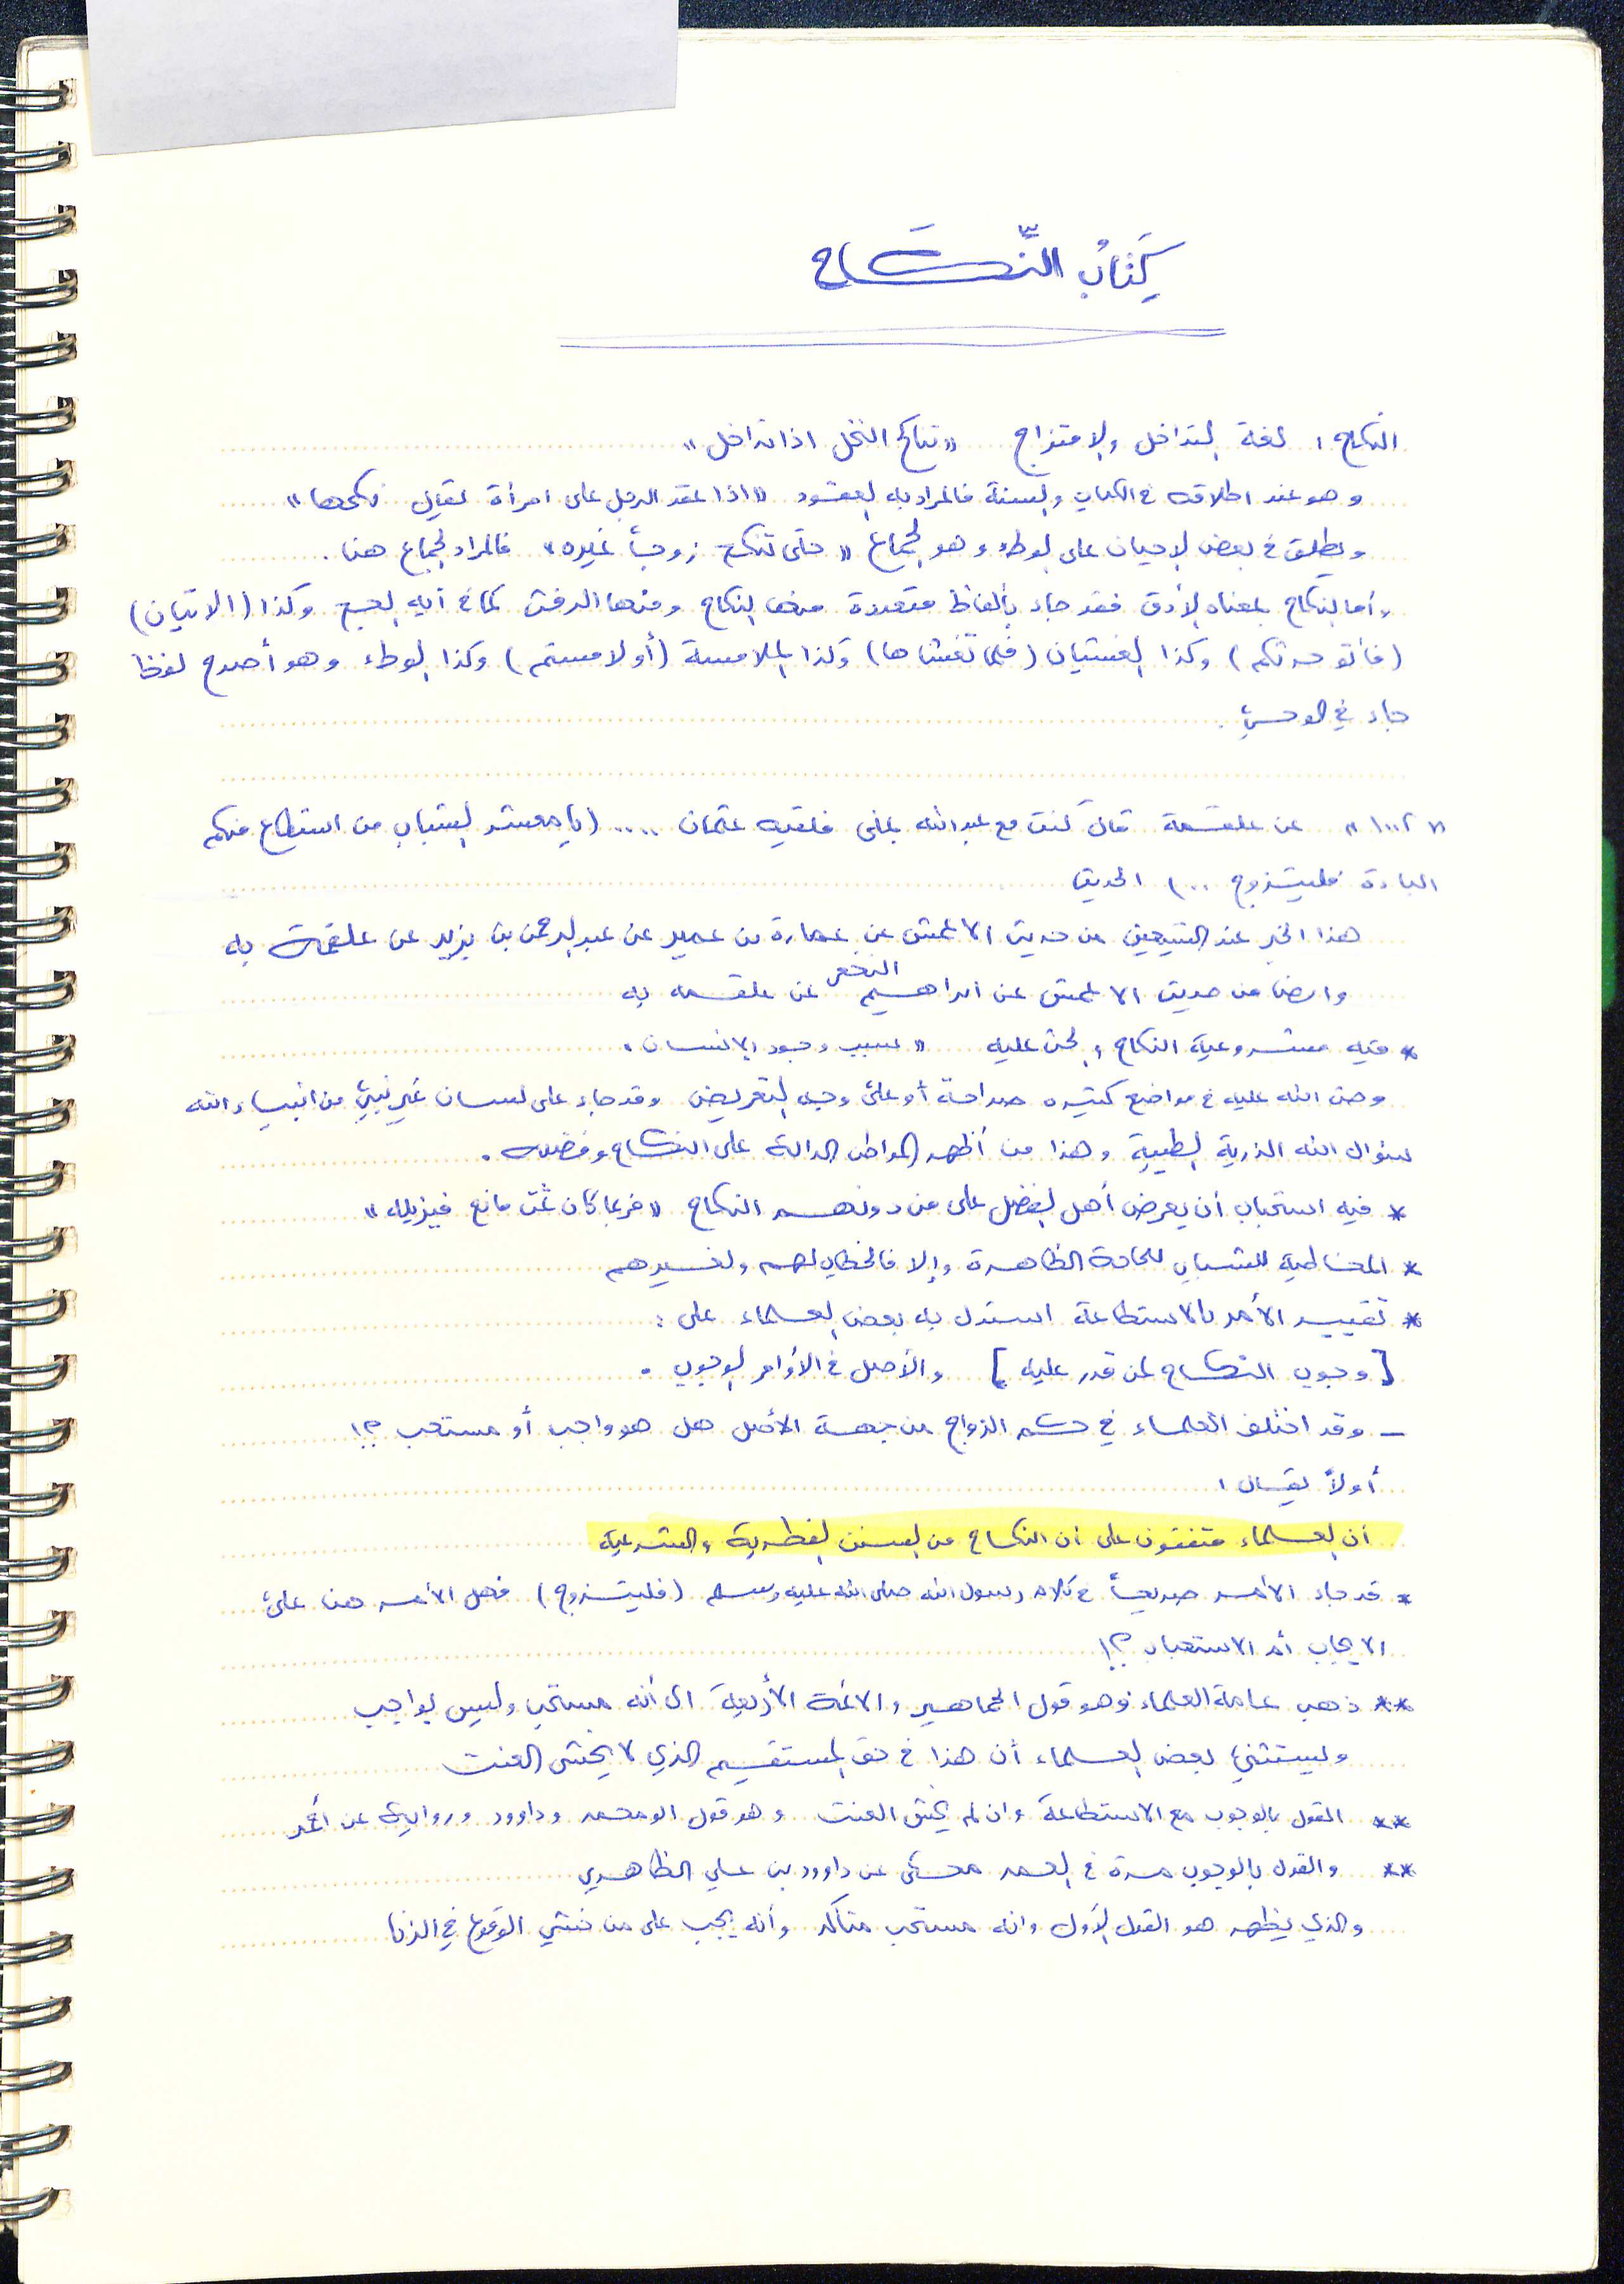 كِتَابُ النِّكَاح
النكاح : لغة التداخل والامتزاج "تناكح النخل اذا تداخل"
وهو عند اطلاقه في الكتاب والسنة فالمراد به العقود "اذا عقد الرجل على امرأة يقال نكحها"
ويطلق في بعض الاحيان على الوطء وهو الجماع "حتى تنكح زوجاً غيره" فالمراد الجماع هنا .
وأما النكاح بمعناه الأدق فقد جاء بألفاظ متعددة منها النكاح ومنها الرفث كما في آيه الحج وكذا (الاتيان)
(فأتو حرثكم) وكذا الغشيان (فلما تغشاها) وكذا الملامسة (أو لامستم) وكذا الوطء وهو أصرح لفظا
جاء في الوحي .
"١٠٠٢" عن علقمة قال كنت مع عبدالله بمنى فلقيه عثمان .... (يا معشر الشباب من استطاع منكم
الباءة فليتزوج ...) الحديث
هذا الخبر عند الشيخين من حديث الاعمش عن عمارة بن عمير عن عبدالرحمن بن يزيد عن علقمة به
وايضا من حديث الاعمش عن ابراهيم النخعي عن علقمه به
* فيه مشروعية النكاح والحث عليه "سبب وجود الانسان"
وحث الله عليه في مواضع كثيره صراحة أو على وجه التعريض وقد جاء على لسان غير نبيٍ من انبياء الله
سؤال الله الذرية الطيبة وهذا من أظهر المواطن الدالة على النكاح وفضله .
* فيه استحباب أن يعرض أهل الفضل على من دونهم النكاح "فربما كان ثمت مانع فيزيله"
* المخاطبة للشباب للحاجة الظاهرة وإلا فالخطاب لهم ولغيرهم
* تقييد الأمر بالاستطاعة استدل به بعض العلماء على :
[وجوب النكاح لمن قدر عليه] والأصل في الأوامر الوجوب .
- وقد اختلف العلماء في حكم الزواج من جهة الأصل هل هو واجب أو مستحب ؟!
أولاً يقال :
أن العلماء متفقون على أن النكاح من السنن الفطرية والشرعية
* قد جاء الأمر صريحاً في كلام رسول الله صلى الله عليه وسلم (فليتزوج) فهل الأمر هنا على
الايجاب أم الاستحباب ؟!
** ذهب عامة العلماء وهو قول الجماهير والائمة الأربعة الى أنه مستحب وليس بواجب
ويستثني بعض العلماء أن هذا في حق المستقيم الذي لا يخشى العنت
** القول بالوجوب مع الاستطاعة وان لم يخش العنت وهو قول ابو محمد وداوود ورواية عن أحمد
** والقول بالوجوب مرة في العمر محكى عن داوود بن علي الظاهري
والذي يظهر هو القول الأول وانه مستحب متأكد وأنه يجب على من خشي الوقوع في الزنا